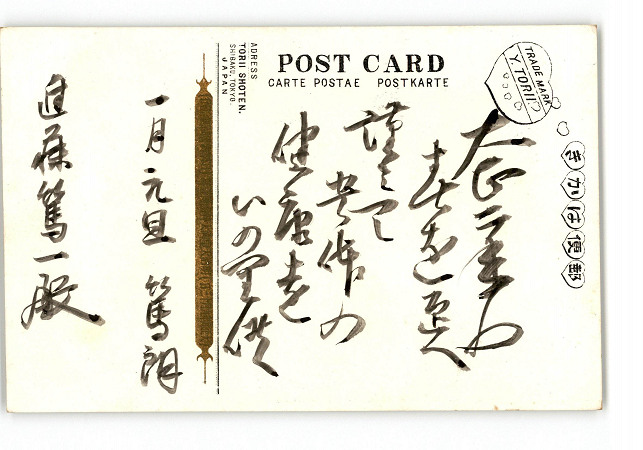 POST CARD
CARTE POSTAE POSTKARTE
TRADE MARK
Y. TORII
ADRESS
TORII SHOTEN.
SHIBAKU, TOKYO.
JAPAN
きかは便郵
大正二年の
春を迎へ
謹みて
貴作の
健康を
いのり候
一月元旦 篤朗
進藤篤一殿